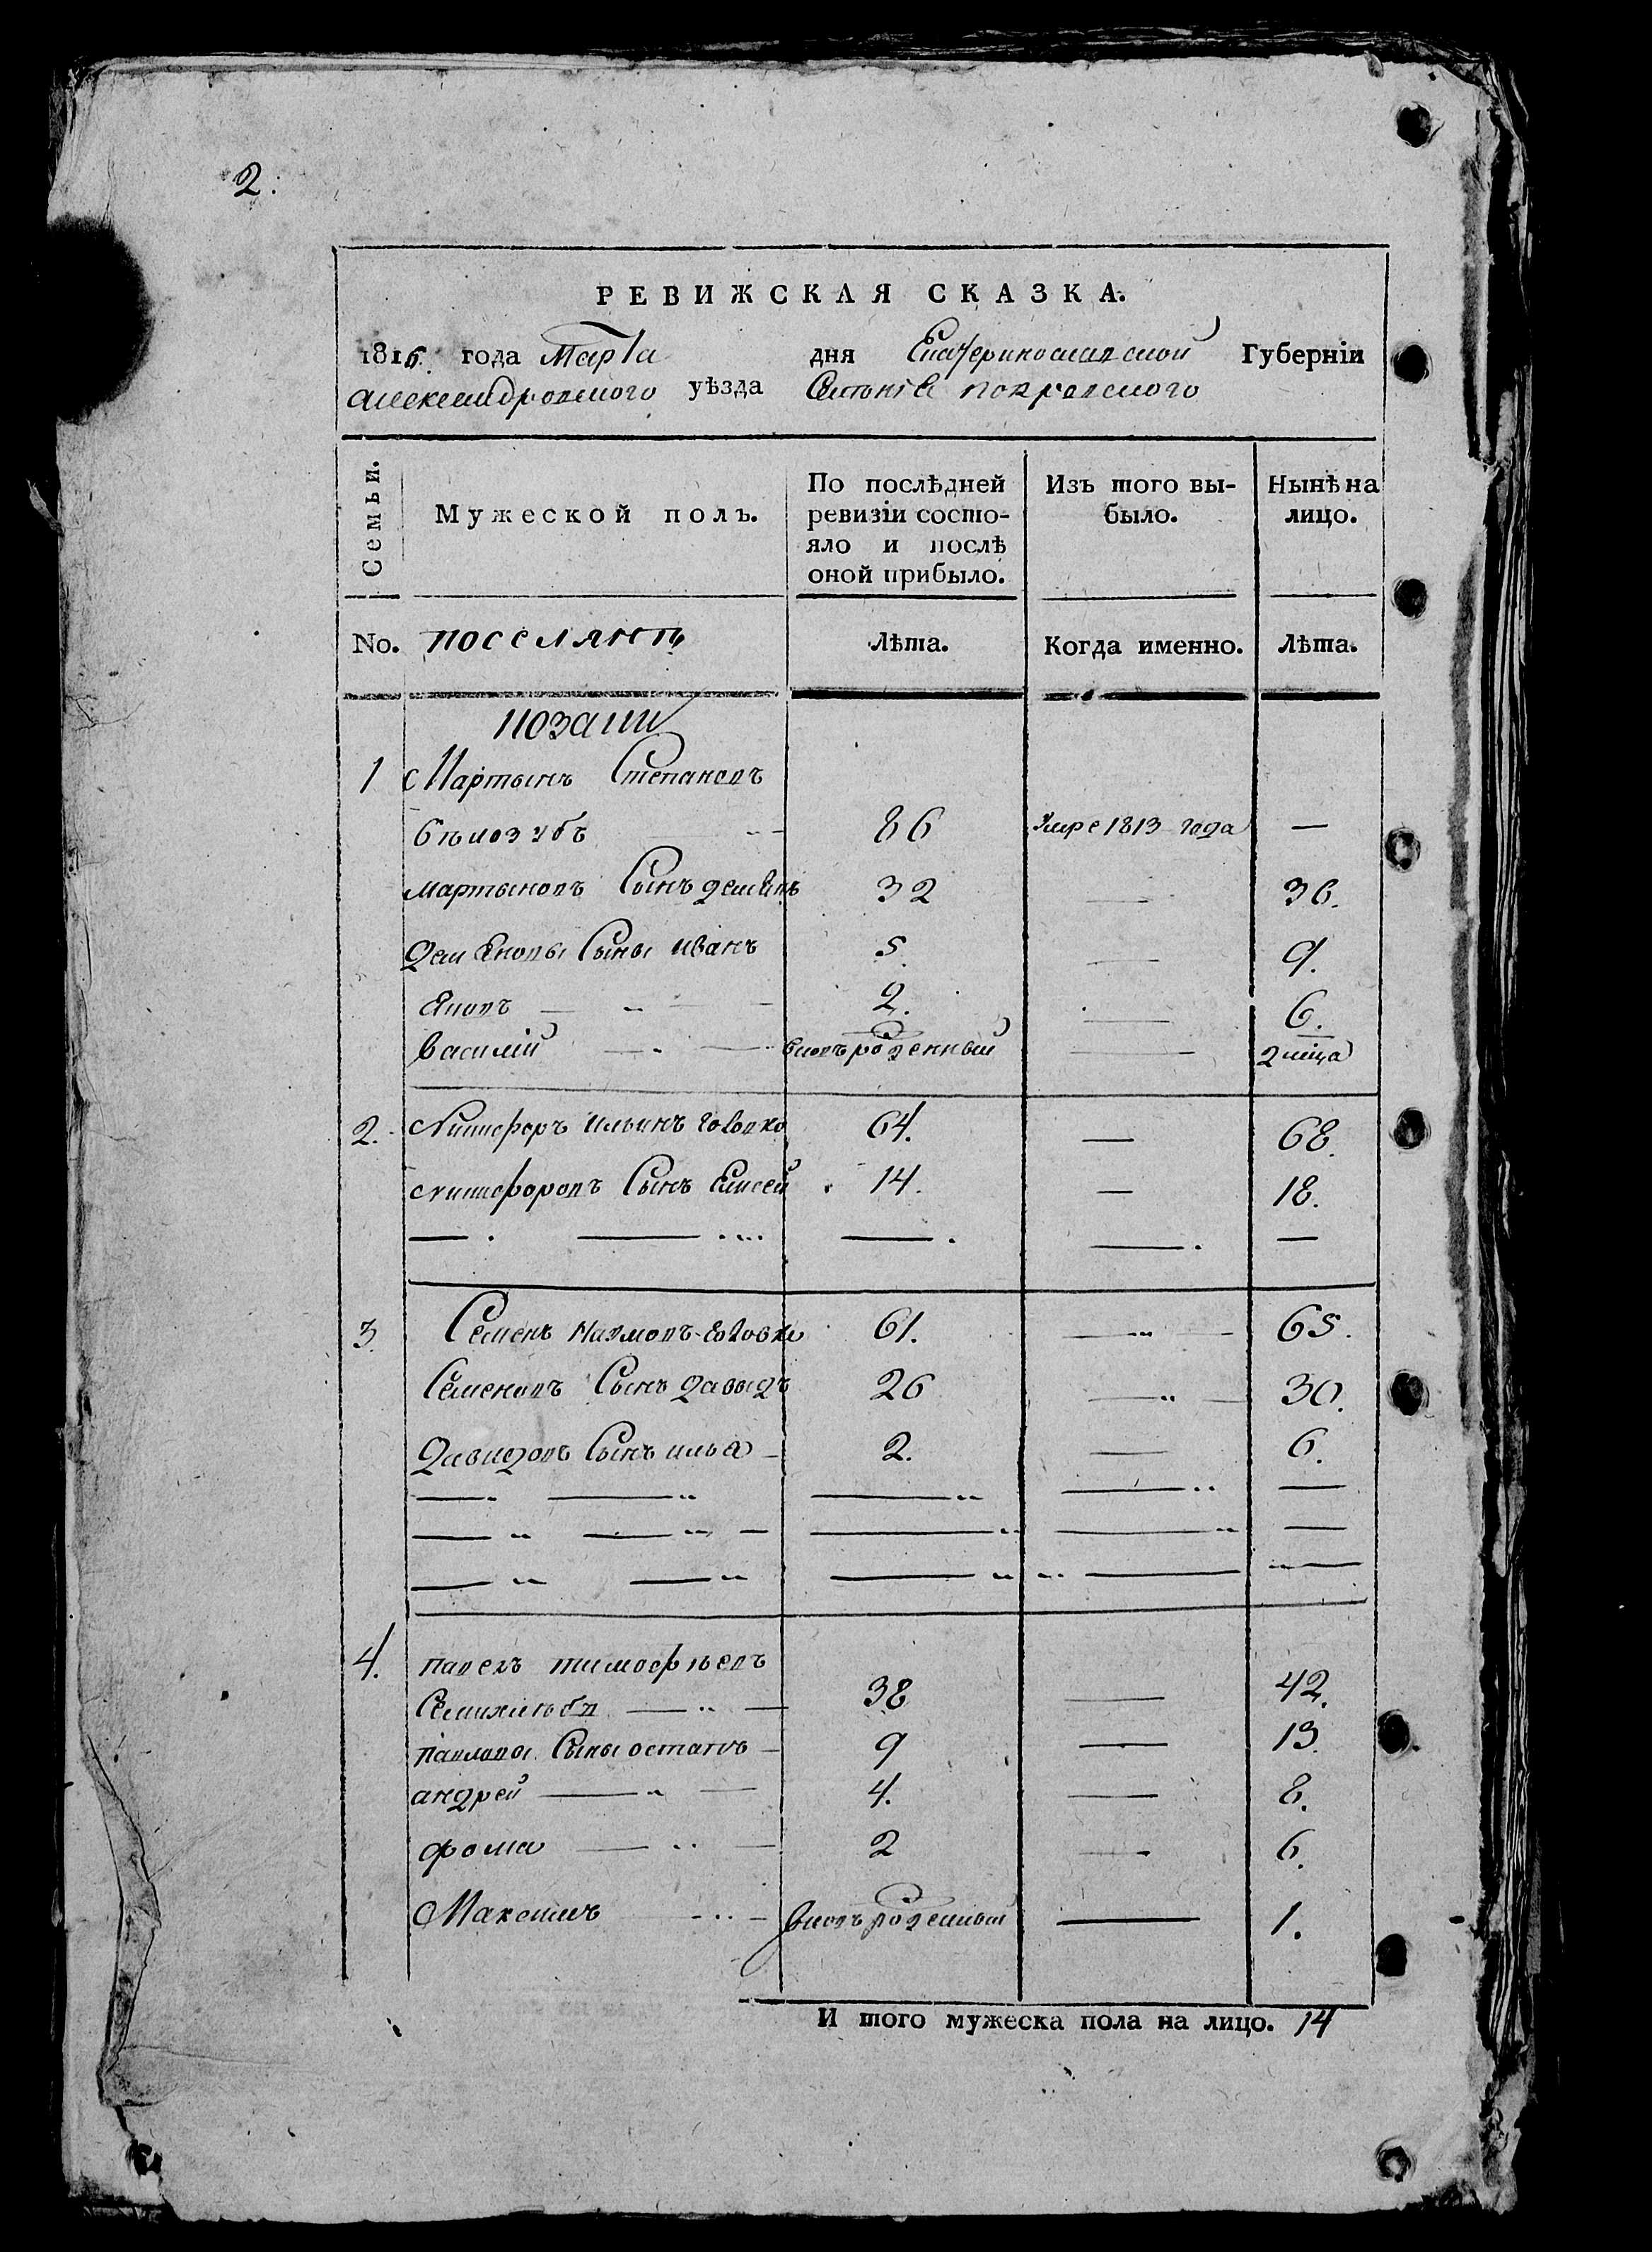 2.
РЕВИЖСКАЯ СКАЗКА.
1816. года Марта дня Екатеринославской Губерніи
Александровского уѣзда Селѣнія покровского
Семьи. Мужеской полъ. По послѣдней ревизіи состо-яло и послѣ оной прибыло. Изъ того вы-было. Нынѣ на лицо.
No. поселянъ Лѣта. Когда именно. Лѣта.
козаки
1 Мартынъ Степановъ
бѣлозубъ 86 умре 1813 года —
мартыновъ Сынъ демянъ 32 — 36.
Демяновы Сыны иванъ 5. — 9.
яковъ 2. — 6.
василій вновьрожденный — 2 мѣца
2. Никифоръ ильинъ головко 64. — 68.
никифоровъ Сынъ Елисей 14. — 18.
3. Семенъ наумовъ головко 61. — 65.
Семеновъ Сынъ давыдъ 26 — 30.
Давидовъ Сынъ илья 2. — 6.
4. павелъ тимофѣевъ
Семихлѣбъ 38 — 42.
павловы Сыны остапъ 9 — 13.
андрей 4. — 8.
фома 2 — 6.
Максимъ вновьрожденный — 1.
И того мужеска пола на лицо. 14